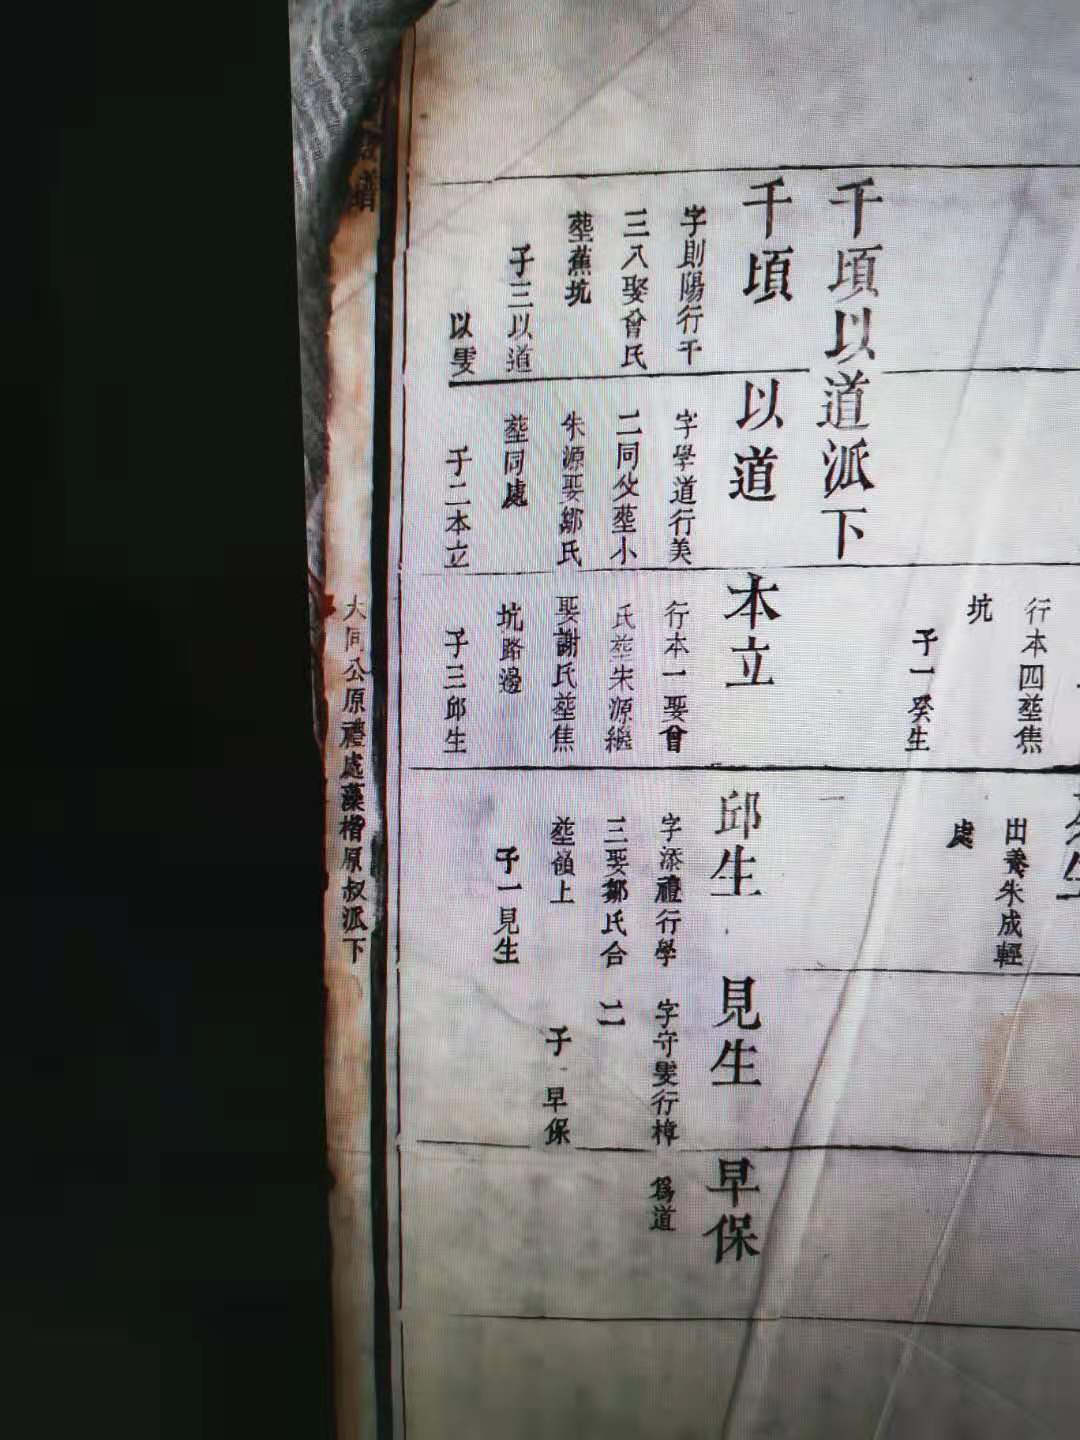 行本四塟焦
坑
子一癸生
出養朱成輕
處
千頃以道派下
千頃
字則陽行千
三八娶曾氏
塟蕉坑
子三以道
以雯
以道
字學道行美
二同父塟小
朱源娶鄒氏
塟同處
子二本立
本立
行本一娶曾
氏塟朱源繼
娶謝氏塟焦
坑路邊
子三邱生
邱生
字添禮行學
三娶鄒氏合
塟嶺上
子一見生
見生
字守雯行樟
二
子 早保
早保
爲道
大同公原禮處藻楷原叔派下
譜